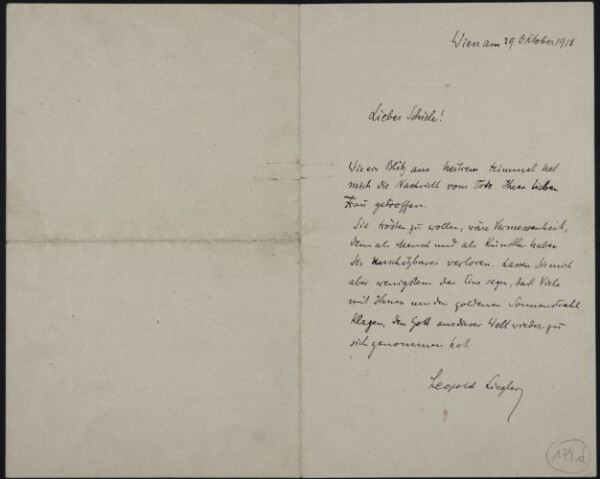 Wien am 29. Oktober 1918
Lieber Schiele!
Wie ein Blitz aus heitrem Himmel hat
mich die Nachricht vom Tode Ihrer lieben
Frau getroffen.
Sie trösten zu wollen, wäre Vermessenheit,
denn als Mensch und als Künstler haben
Sie Unschätzbares verloren. Lassen Sie mich
aber wenigstens das Eine sagen, daß Viele
mit Ihnen um den goldenen Sonnenstrahl
klagen, den Gott aus dieser Welt wieder zu
sich genommen hat.
Leopold Liegler
179.d